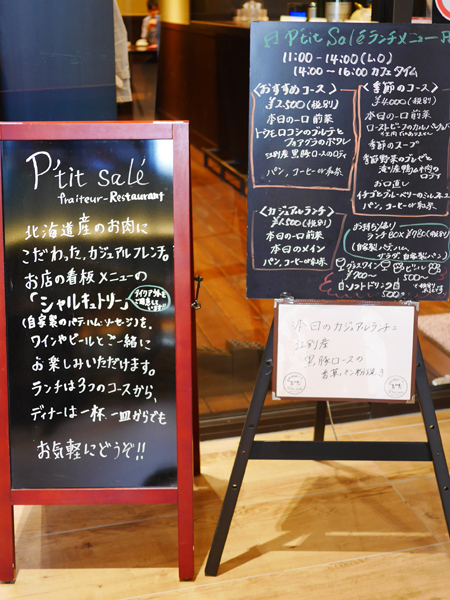 P'tit salé
Traiteur-Restaurant
北海道産のお肉に
こだわった、カジュアルフレンチ。
お店の看板メニューの
「シャルキュトリー」
テイクアウトも
ご用意して
います!!
(自家製のパテ・ハム・ソーセージ)を、
ワインやビールとご一緒に
お楽しみいただけます。
ランチは3つのコースから、
ディナーは一杯、一皿からでも
お気軽にどうぞ!!
P'tit Salé ランチメニュー
11:00-14:00(L.O)
14:00~16:00 カフェタイム
〈おすすめコース〉
¥2,500(税別)
本日の一口前菜
トウモロコシのブルテと
フォアグラのポワレ
江別産黒豚ロースのロティ
パン、コーヒーor紅茶
〈季節のコース〉
¥4,000(税別)
本日の一口前菜
ローストビーフのカルパッチョ
季節のスープ
季節野菜の
お口直し
パン、コーヒーor紅茶
〈カジュアルランチ〉
¥1,500(税別)
本日の一口前菜
本日のメイン
パン、コーヒーor紅茶
お持ち帰り
ランチBOX ¥780(税別)
(自家製パテ・ハム、
サラダ、自家製パン)
グラスワイン
ビール
500~
ソフトドリンク
500
本日のカジュアルランチ:
江別産
黒豚ロースの
香草パン粉焼き